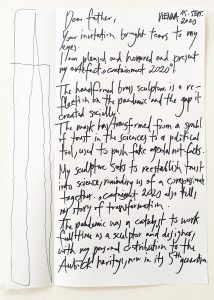 Dear father,
VIENNA, 15. SEPT. 2020
Your invitation brought tears to my
eyes.
I am pleased and honored and present
my artefact "containment 2020".
The handformed brass sculpture is a re-
flection on the pandemic and the gap it
created socially.
The mask has transformed from a symbol
of trust in the sciences to a political
tool, used to push fake agenda not facts.
My sculpture seeks to reestablish trust
into science, reminding us of a
together. 2020 also tells
my story of transformation.
The pandemic was a catalyst to work
fulltime as a sculptor and designer,
with my personal contribution to the
heritage, now in its 5th generation